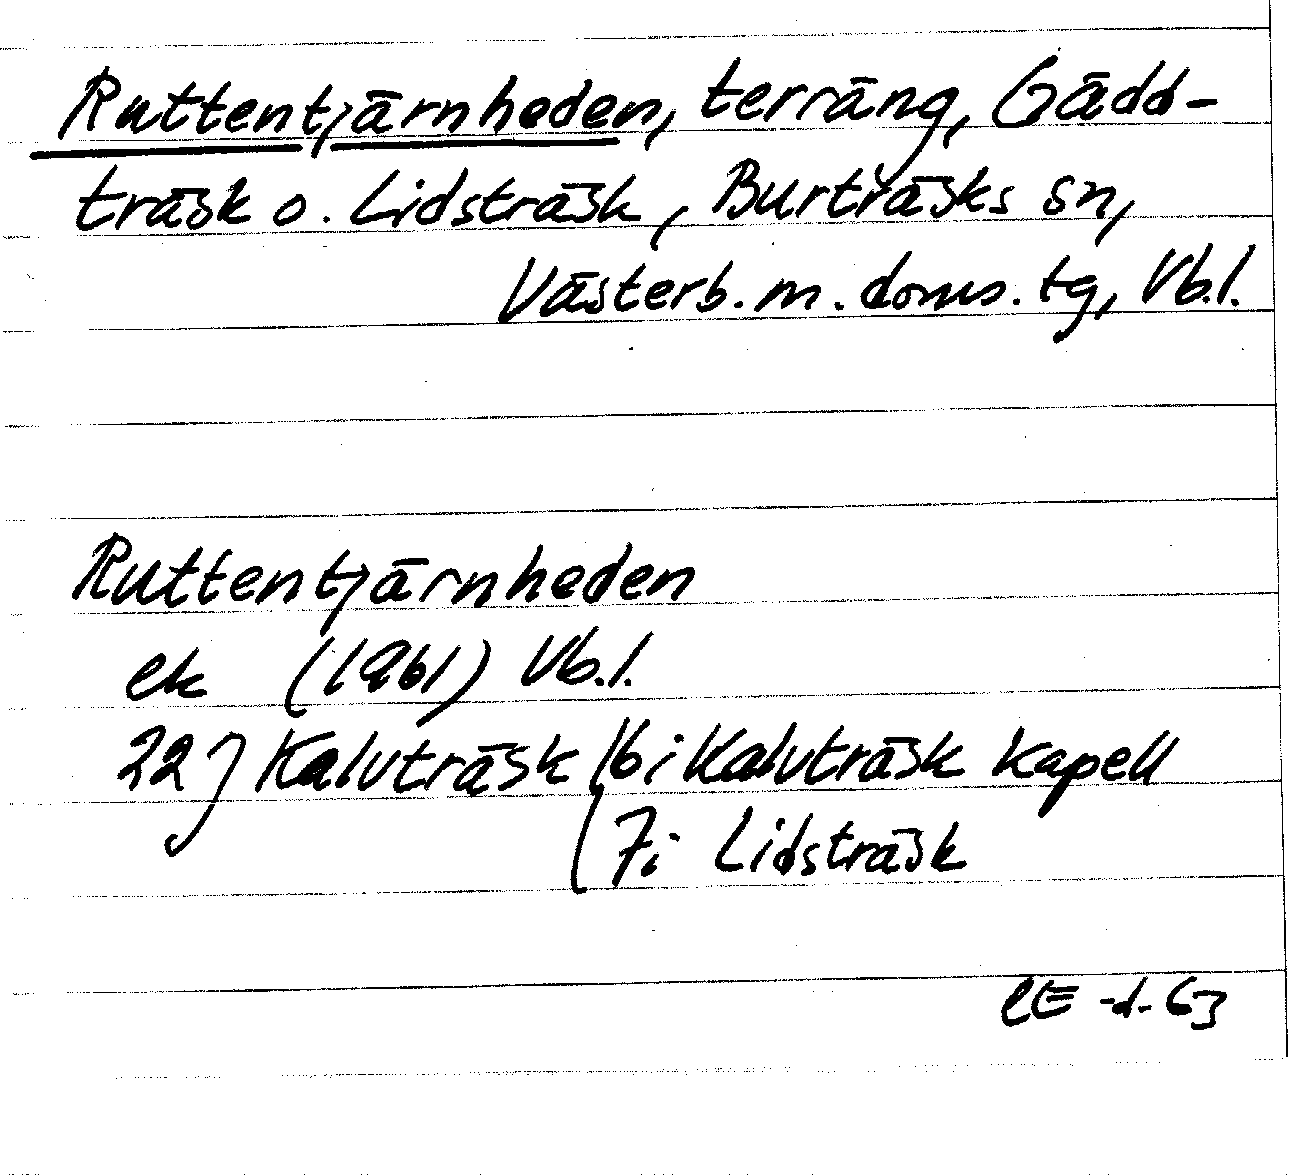 Ruttentjärnheden, terräng, Gädd-
träsk o. Lidsträsk, Burträsks sn,
Västerb. m. doms. tg, Vb.l.
Ruttentjärnheden
ek (1961) Vb.l.
22 J Kalvträsk (6 i Kalvträsk kapell
7 i Lidsträsk
CE -d- 63